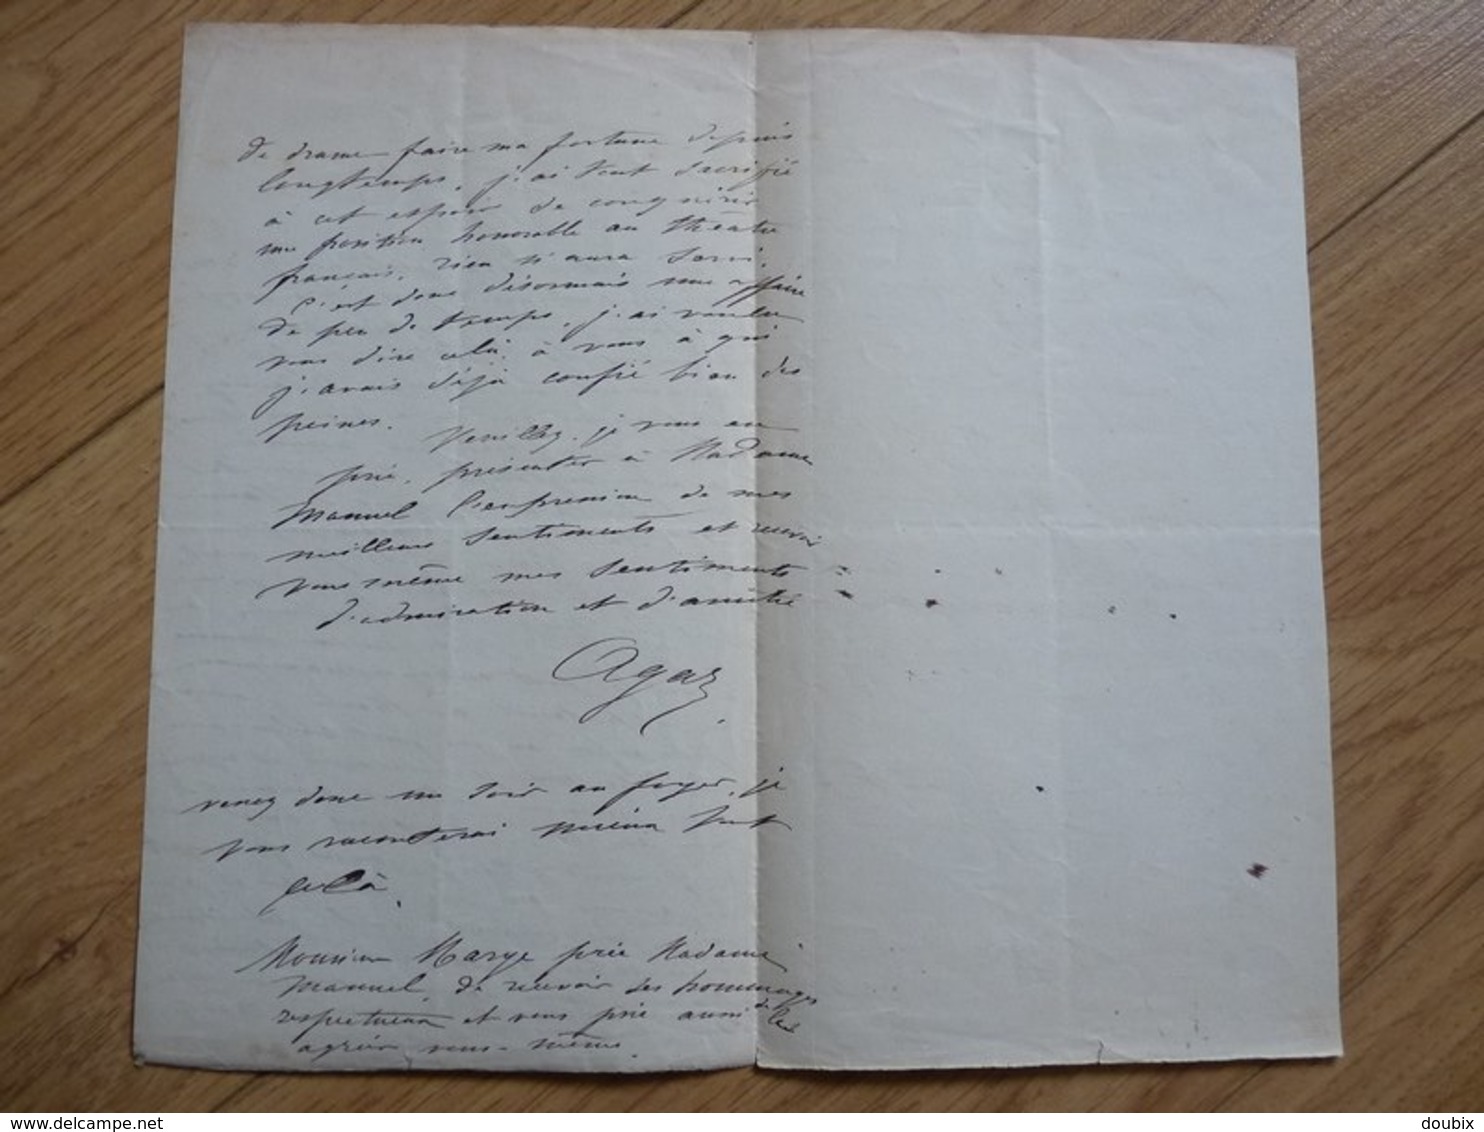 de drame faire ma fortune depuis
longtemps. j'ai tout sacrifié
à cet espoir de conquérir
une position honorable au théâtre
français. rien n'aura servi.
C'est donc désormais une affaire
de peu de temps, j'ai voulu
vous dire cela, à vous à qui
j'avais déjà confié bien des
peines.
Veuillez, je vous en
prie, présenter à Madame
Manuel l'expression de mes
meilleurs sentiments et recevoir
vous même mes sentiments
d'admiration et d'amitié
Agar
venez donc un soir au foyer, je
vous raconterai mieux tout
celà.
Monsieur Marye prie Madame
Manuel, de recevoir ses hommages
respectueux et vous prie aussi de les
agréer vous-même.
delcampe.net
doubix